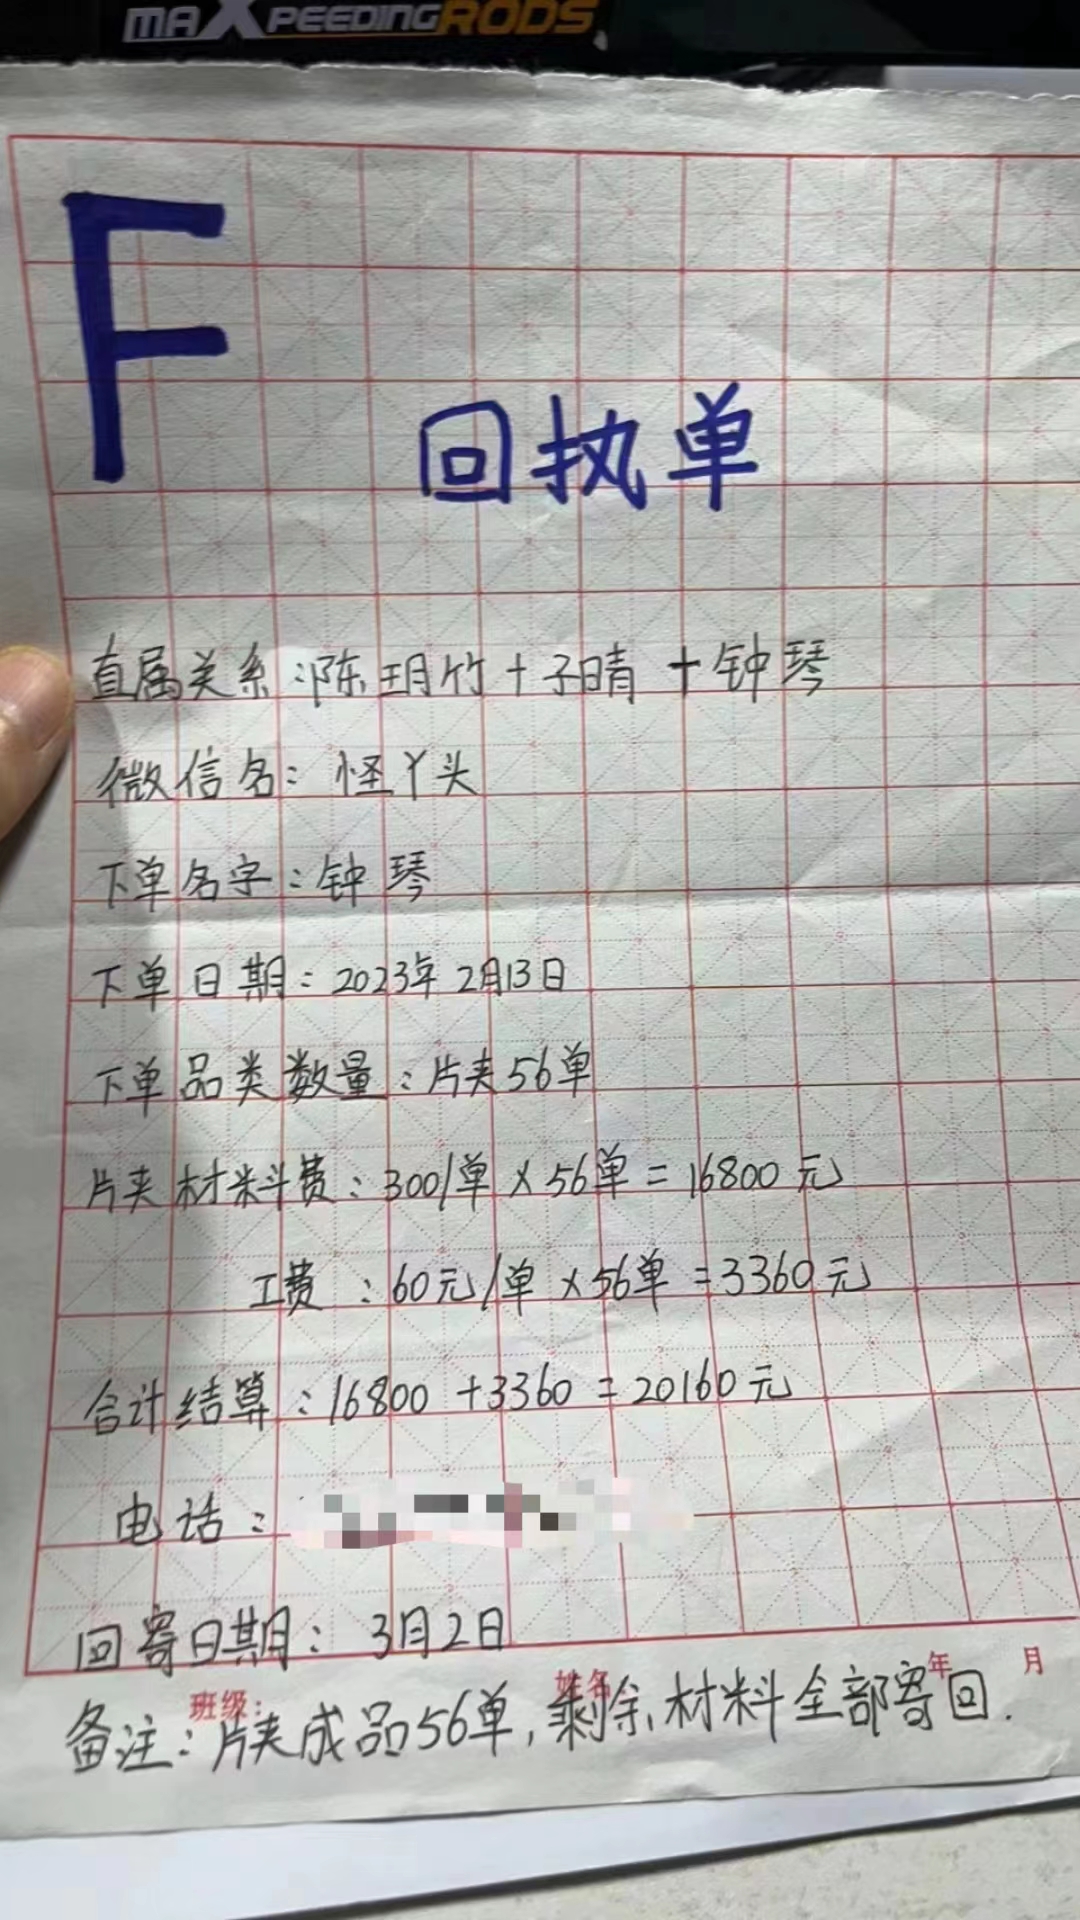 MAXPEEDINGRODS
F
回执单
直属关系:陈玥竹+子晴+钟琴
微信名:怪丫头
下单名字:钟琴
下单日期:2023年2月13日
下单品类数量:片夹56单
片夹材料费:300/单×56单=16800元
工费:60元/单×56单=3360元
合计结算:16800+3360=20160元
电话:
回寄日期:3月2日
班级: 姓名 年 月
备注:片夹成品56单,剩余材料全部寄回.